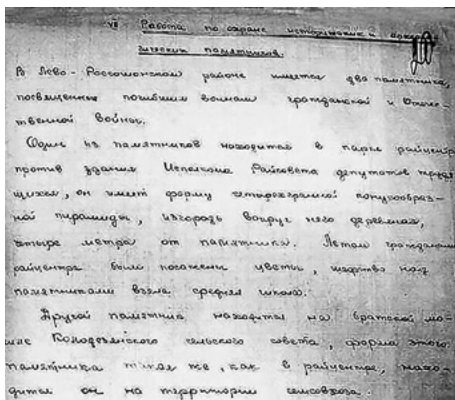 VII Работа по охране исторических и архео-
логических памятников.
В Лево-Россошанском районе имеется два памятника,
посвященные погибшим воинам гражданской и Отече-
ственной войны.
Один из памятников находится в парке райцентра
против здания Исполкома Райсовета депутатов трудя
щихся, он имеет форму четырехгранной конусообраз-
ной пирамиды, изгородь вокруг него деревянная,
четыре метра от памятника. Летом гражданами
райцентра были посажены цветы, шефство над
памятниками взяла средняя школа.
Другой памятник находится на братской мо-
иле Колодезянского сельского совета, форма этого
памятника такая же, как в райцентре, нахо-
дится он на территории